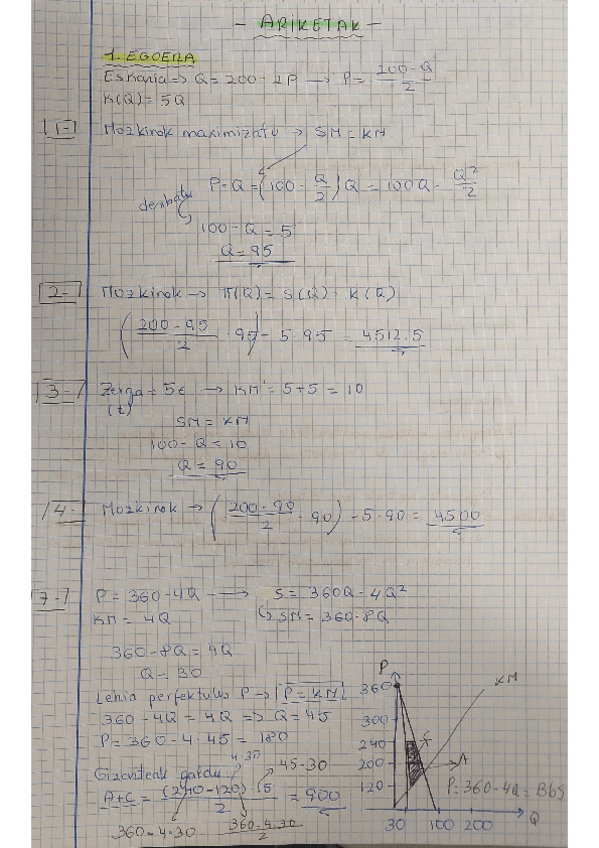 - ARIKETAK -
1. EGOERA
Eskaria => Q = 200 - 2P → P = 200 - Q / 2
K(Q) = 5Q
1-) Mozkinok maximizatu → SM = KM
P·Q = (100 - Q/2) Q = 100Q - Q²/2
deribatu
100 - Q = 5
Q = 95
2-) Mozkinok → π(Q) = S(Q) - K(Q)
(200 - 95 / 2 · 95) - 5·95 = 4512.5
3-) Zerga = 5€ → KM' = 5+5 = 10
(t)
SM = KM
100 - Q = 10
Q = 90
4- Mozkinok → (200 - 90 / 2 · 90) - 5·90 = 4500
7-) P = 360 - 4Q → S = 360Q - 4Q²
KM = 4Q ↳ SM = 360 - 8Q
360 - 8Q = 4Q
Q = 30
Lehia perfektuko P → |P = KM|
360 - 4Q = 4Q => Q = 45
P = 360 - 4·45 = 180
Gizarteak galdu: 4·30 45-30
A+C = (240 - 120)·15 / 2 = 900
360 - 4·30 360 - 4·30 / 2
P KM
360
300
240 C
200 A
120 P = 360 - 4Q = BbS
30 100 200 Q